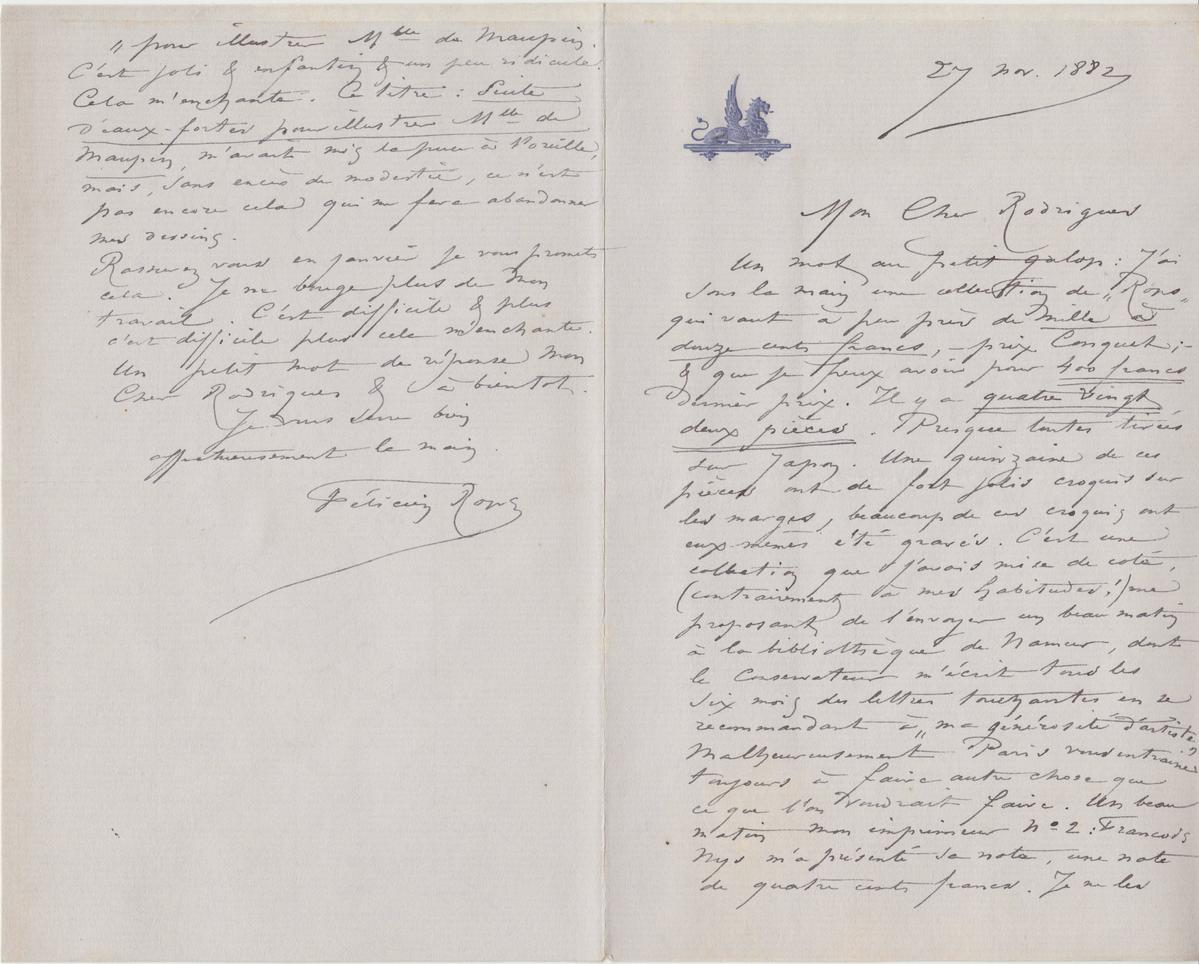 27 nov. 1882
Mon Cher Rodrigues
Un mot au petit galop : J'ai
sous la main une collection de „Rops„
qui vaut à peu près de mille à
douze cents francs, – prix Conquet ; –
& que je peux avoir pour 400 francs
dernier prix. Il y a quatre vingt
deux pièces. Presque toutes tirées
sur Japon. Une quinzaine de ces
pièces ont de fort jolis croquis sur
les marges, beaucoup de ces croquis ont
eux-mêmes été gravés. C'est une
collection que j'avais mise de coté,
(contrairement à mes habitudes!) me
proposant de l'envoyer un beau matin
à la bibliothèque de Namur, dont
le Conservateur m'écrit tous les
six mois des lettres touchantes en se
recommandant à „ma générosité d'artiste„
Malheureusement Paris vous entraine
toujours à faire autre chose que
ce que l'on voudrait faire. Un beau
matin mon imprimeur nº 2 : Francois
Nys m'a présenté sa note, une note
de quatre cents francs. Je ne les
„ pour illustrer Mlle de Maupin.
C'est joli & enfantin & un peu ridicule.
Cela m'enchante. Ce titre : Suite
d'eaux-fortes pour illustrer Mlle de
Maupin, m'avait mis la puce à l'oreille,
mais, sans excès de modestie, ce n'est
pas encore cela qui me fera abandonner
mes dessins.
Rassurez vous en janvier je vous promets
cela. Je ne bouge plus de mon
travail. C'est difficile & plus
c'est difficile plus cela m'enchante.
Un petit mot de réponse mon
Cher Rodrigues & à bientot.
Je vous serre bien
affectueusement la main.
Félicien Rops